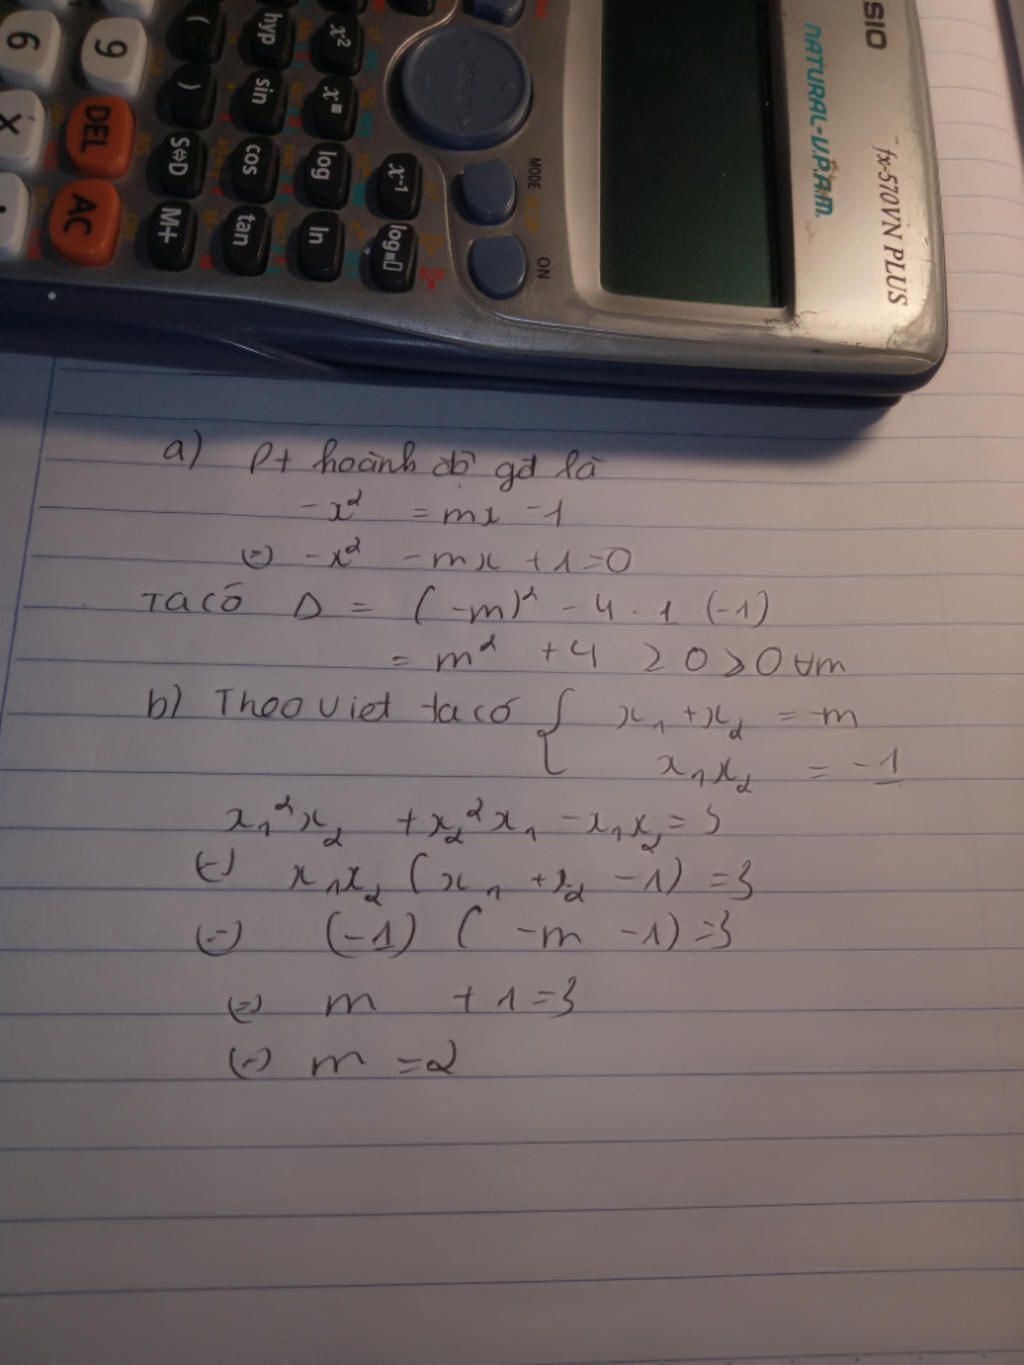 SIO
fx-570VN PLUS
NATURAL-V.P.A.M.
MODE
ON
x² xⁿ log ln
x⁻¹ log
hyp sin cos tan
( ) S⇔D M+
9 DEL AC
6 X
a) Pt hoành độ gđ là
-x² = mx -1
(=) -x² - mx + 1 = 0
Ta có Δ = (-m)² - 4 . 1 (-1)
= m² + 4 ≥ 0 > 0 ∀m
b) Theo Viet ta có { x₁ + x₂ = -m
x₁x₂ = -1
x₁²x₂ + x₂²x₁ - x₁x₂ = 3
(=) x₁x₂ (x₁ + x₂ - 1) = 3
(=) (-1) ( -m -1) = 3
(=) m + 1 = 3
(=) m = 2